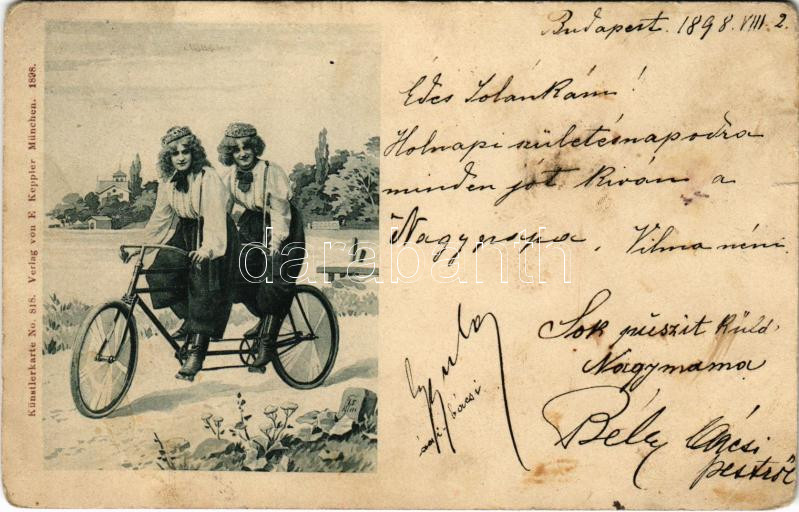 Künstlerkarte No. 818. Verlag von F. Keppler München. 1898.
Budapest. 1898. VIII. 2.
Edes Iolánkám!
Holnapi születésnapodra
minden jót kiván a
Nagypapa. Vilma néni
Sok puszit küld
Nagymama
Gyula
bácsi
Béla
pestről
darabanth